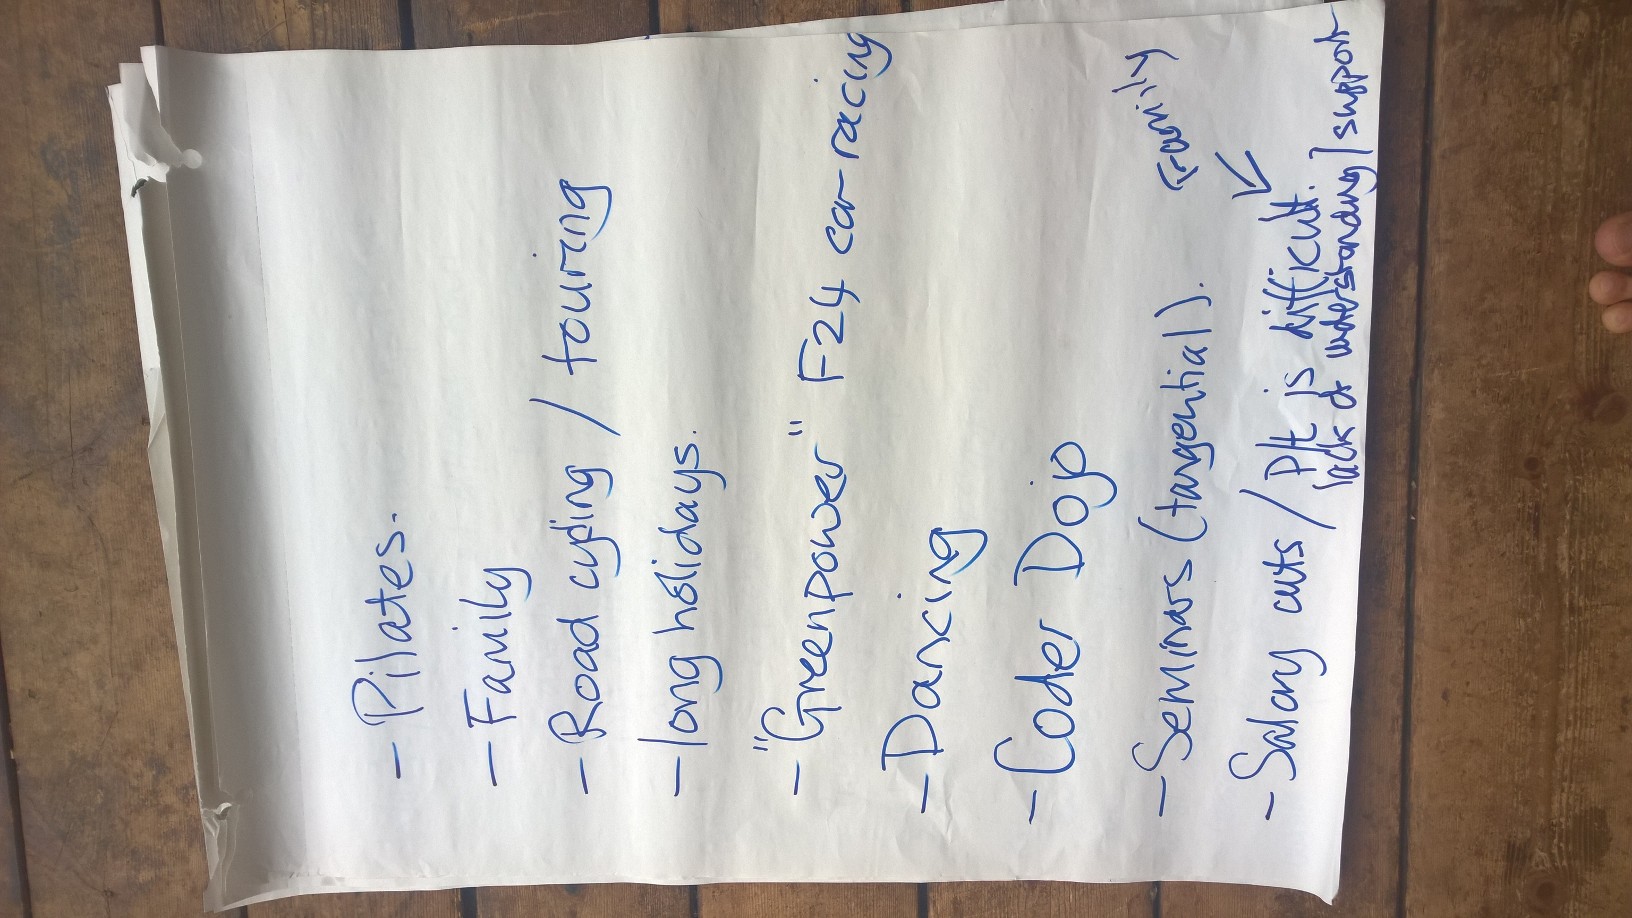 - Pilates.
- Family
- Road cycling / touring
- long holidays.
- "Greenpower" F24 car racing
- Dancing
- Coder Dojo
- Seminars (tangential).
Family
- Salary cuts / P/t is difficult.
lack of understanding / support